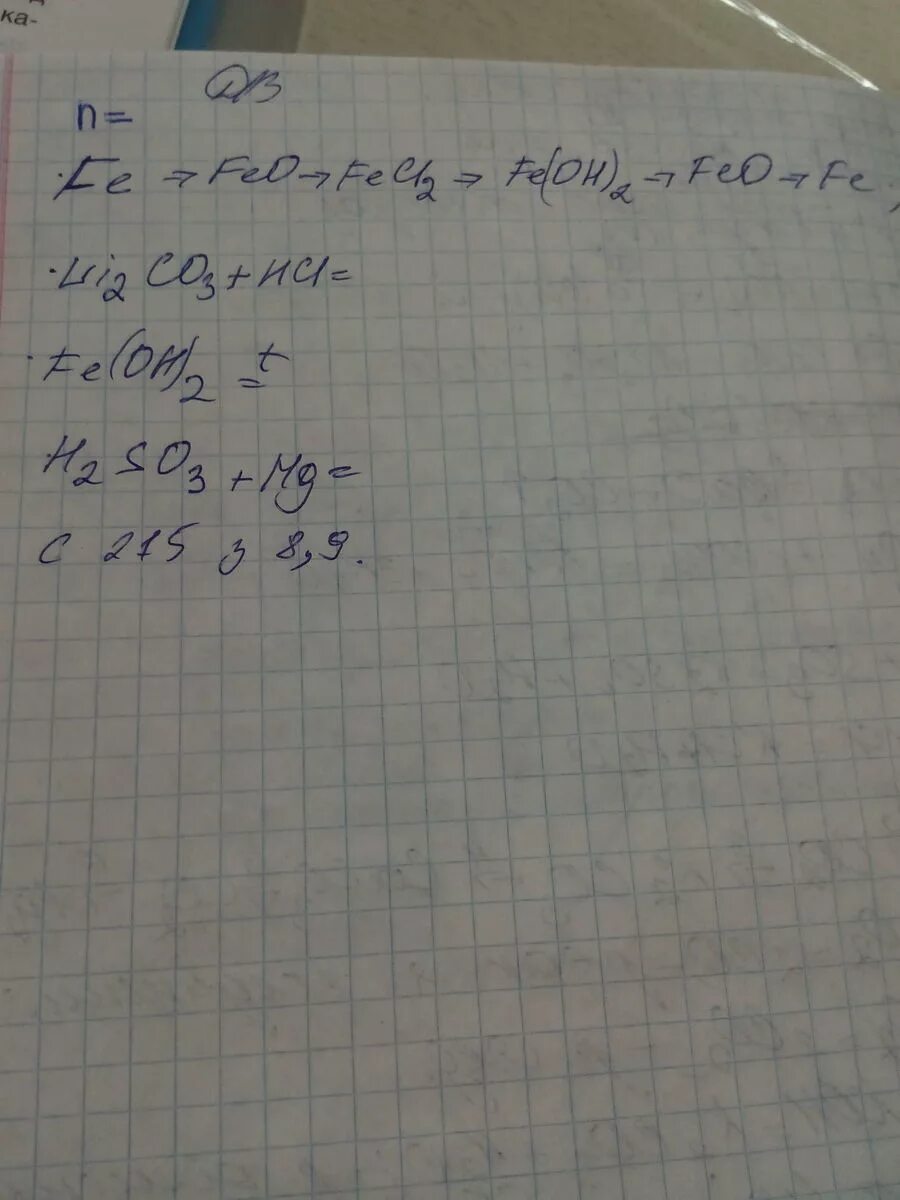 ка-
Д/З
n=
·Fe → FeO → FeCl₂ → Fe(OH)₂ → FeO → Fe
·Li₂CO₃ + HCl =
·Fe(OH)₂ t=
·H₂SO₃ + Mg =
с 215 з 8,9.